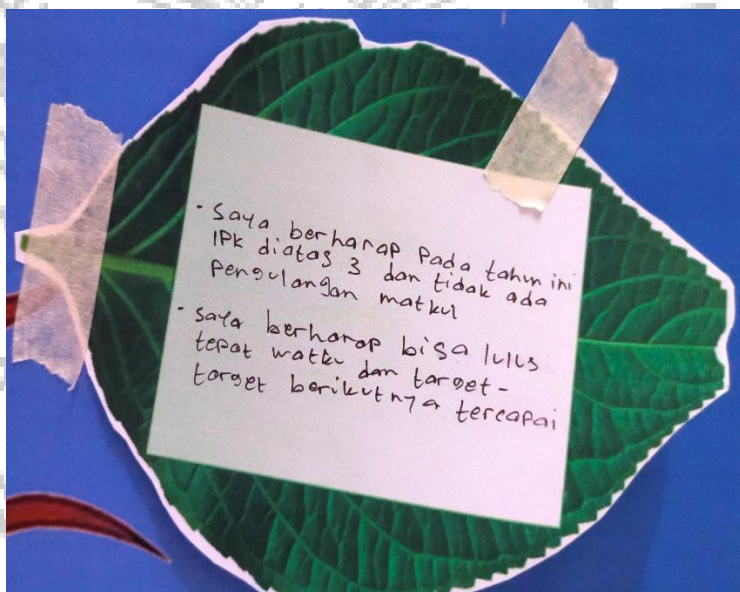 · Saya berharap Pada tahun ini
IPK diatas 3 dan tidak ada
Pengulangan matkul
· Saya berharap bisa lulus
tepat watku dan target-
target berikutnya tercapai